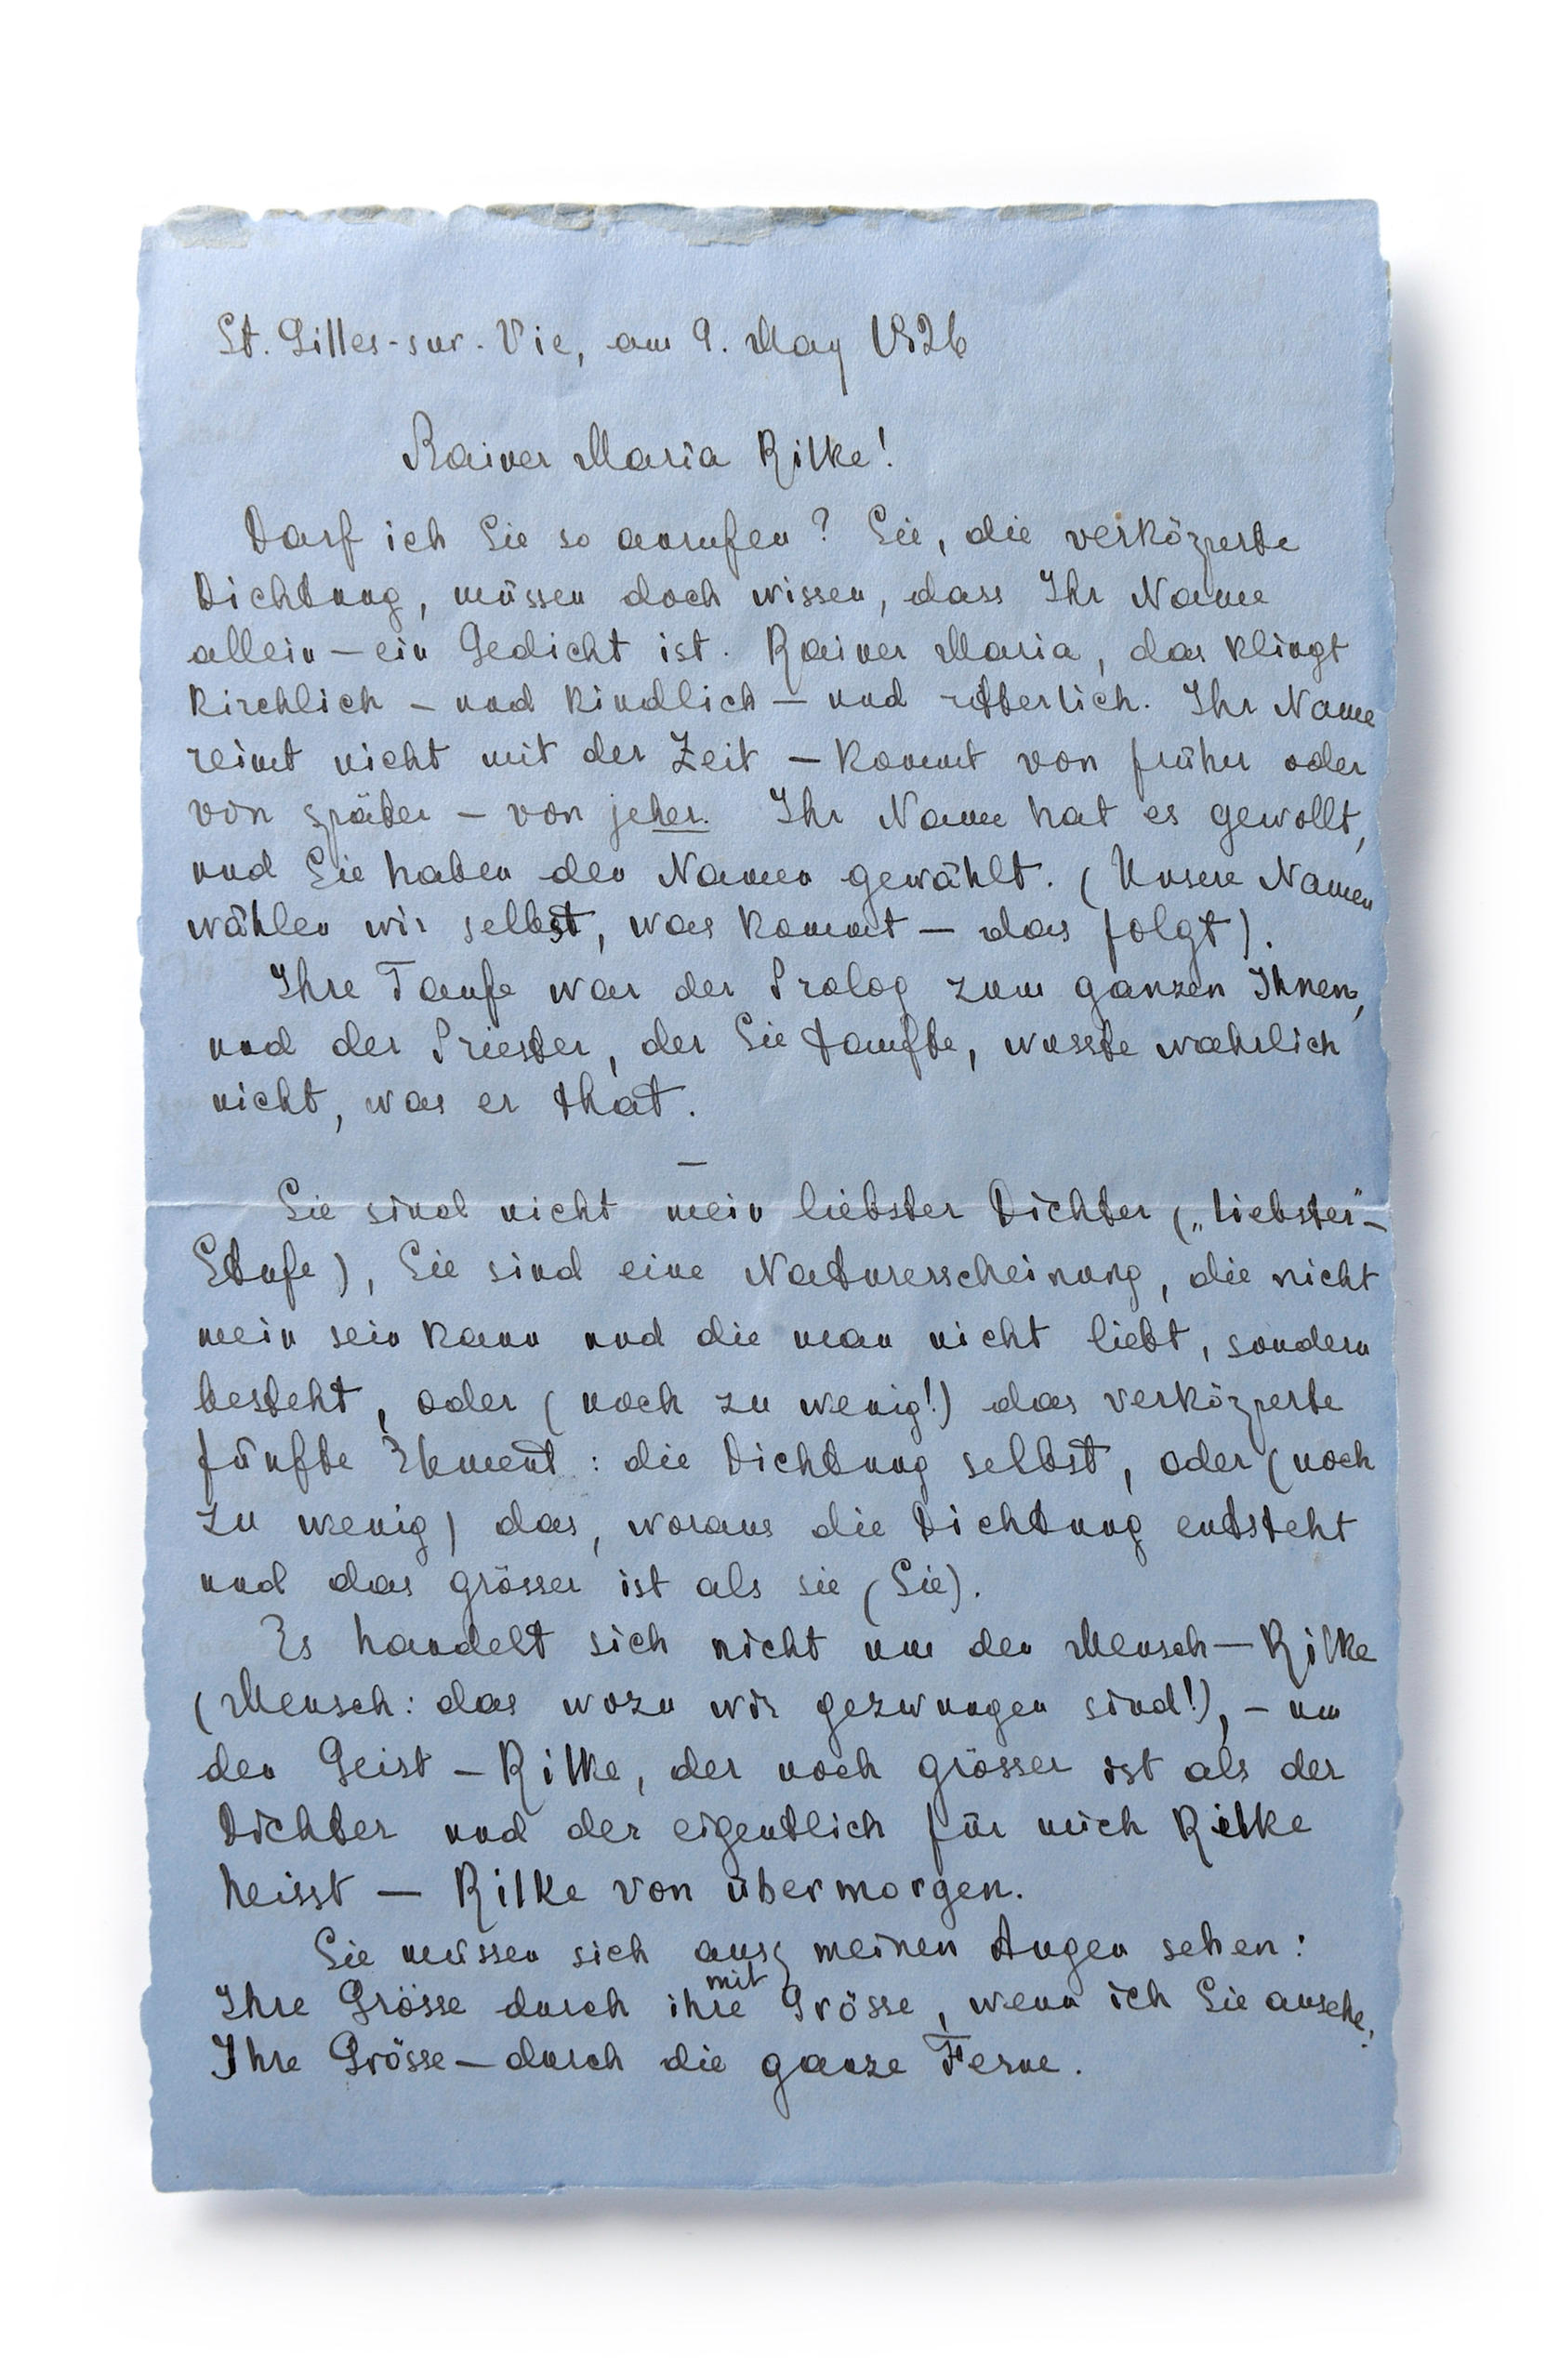 St. Gilles-sur-Vie, am 9. May 1926
Rainer Maria Rilke!
Darf ich Sie so anrufen? Sie, die verkörperte
Dichtung, müssen doch wissen, dass Ihr Name
allein – ein Gedicht ist. Rainer Maria, das klingt
kirchlich – und kindlich – und ritterlich. Ihr Name
reimt nicht mit der Zeit – kommt von früher oder
von später – von jeher. Ihr Name hat es gewollt,
und Sie haben den Namen gewählt. (Unsere Namen
wählen wir selbst, was kommt – das folgt).
Ihre Taufe war der Prolog zum ganzen Ihnen,
und der Priester, der Sie taufte, wusste wahrlich
nicht, was er that.
–
Sie sind nicht mein liebster Dichter („liebster"–
Stufe), Sie sind eine Naturerscheinung, die nicht
mein sein kann und die man nicht liebt, sondern
besteht, oder (noch zu wenig!) das verkörperte
fünfte Element: die Dichtung selbst, oder (noch
zu wenig) das, woraus die Dichtung entsteht
und das grösser ist als sie (Sie).
Es handelt sich nicht um den Mensch – Rilke
(Mensch: das wozu wir gezwungen sind!), – um
den Geist – Rilke, der noch grösser ist als der
Dichter und der eigentlich für mich Rilke
heisst – Rilke von übermorgen.
Sie müssen sich aus meinen Augen sehen:
Ihre Grösse durch ihre mit Grösse, wenn ich Sie ansehe,
Ihre Grösse – durch die ganze Ferne.